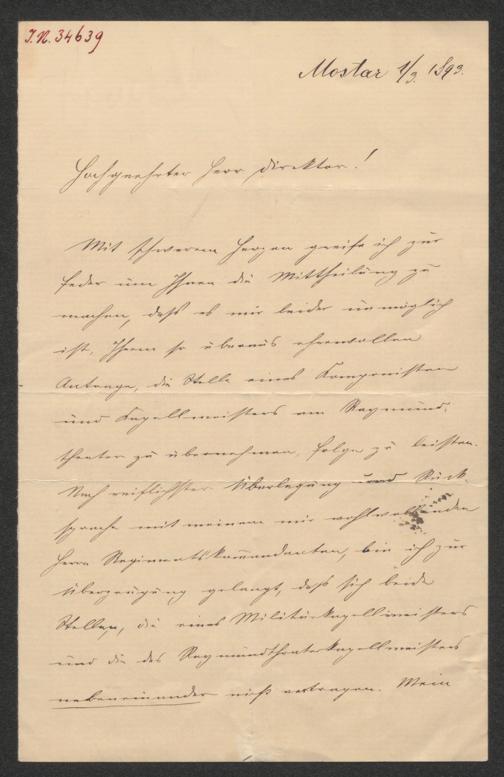 J.N. 34639
Mostar 1/3. 1893.
Hochgeehrter Herr Direktor!
Mit schwerem Herzen greife ich zur
Feder um Ihnen die Mittheilung zu
machen, daß es mir leider unmöglich
ist, Ihrem so überaus ehrenvollen
Antrage, die Stelle eines Komponisten
und Kapellmeisters am Raymund-
theater zu übernehmen, Folge zu leisten.
Nach reiflichster Überlegung und Rück-
sprache mit meinem mir wohlwollenden
Herrn Regimentskommandanten, bin ich zur
Überzeugung gelangt, daß sich beide
Stellen, die eines Militärkapellmeisters
und die des Raymundtheaterkapellmeisters
nebeneinander nicht vertragen. Mein